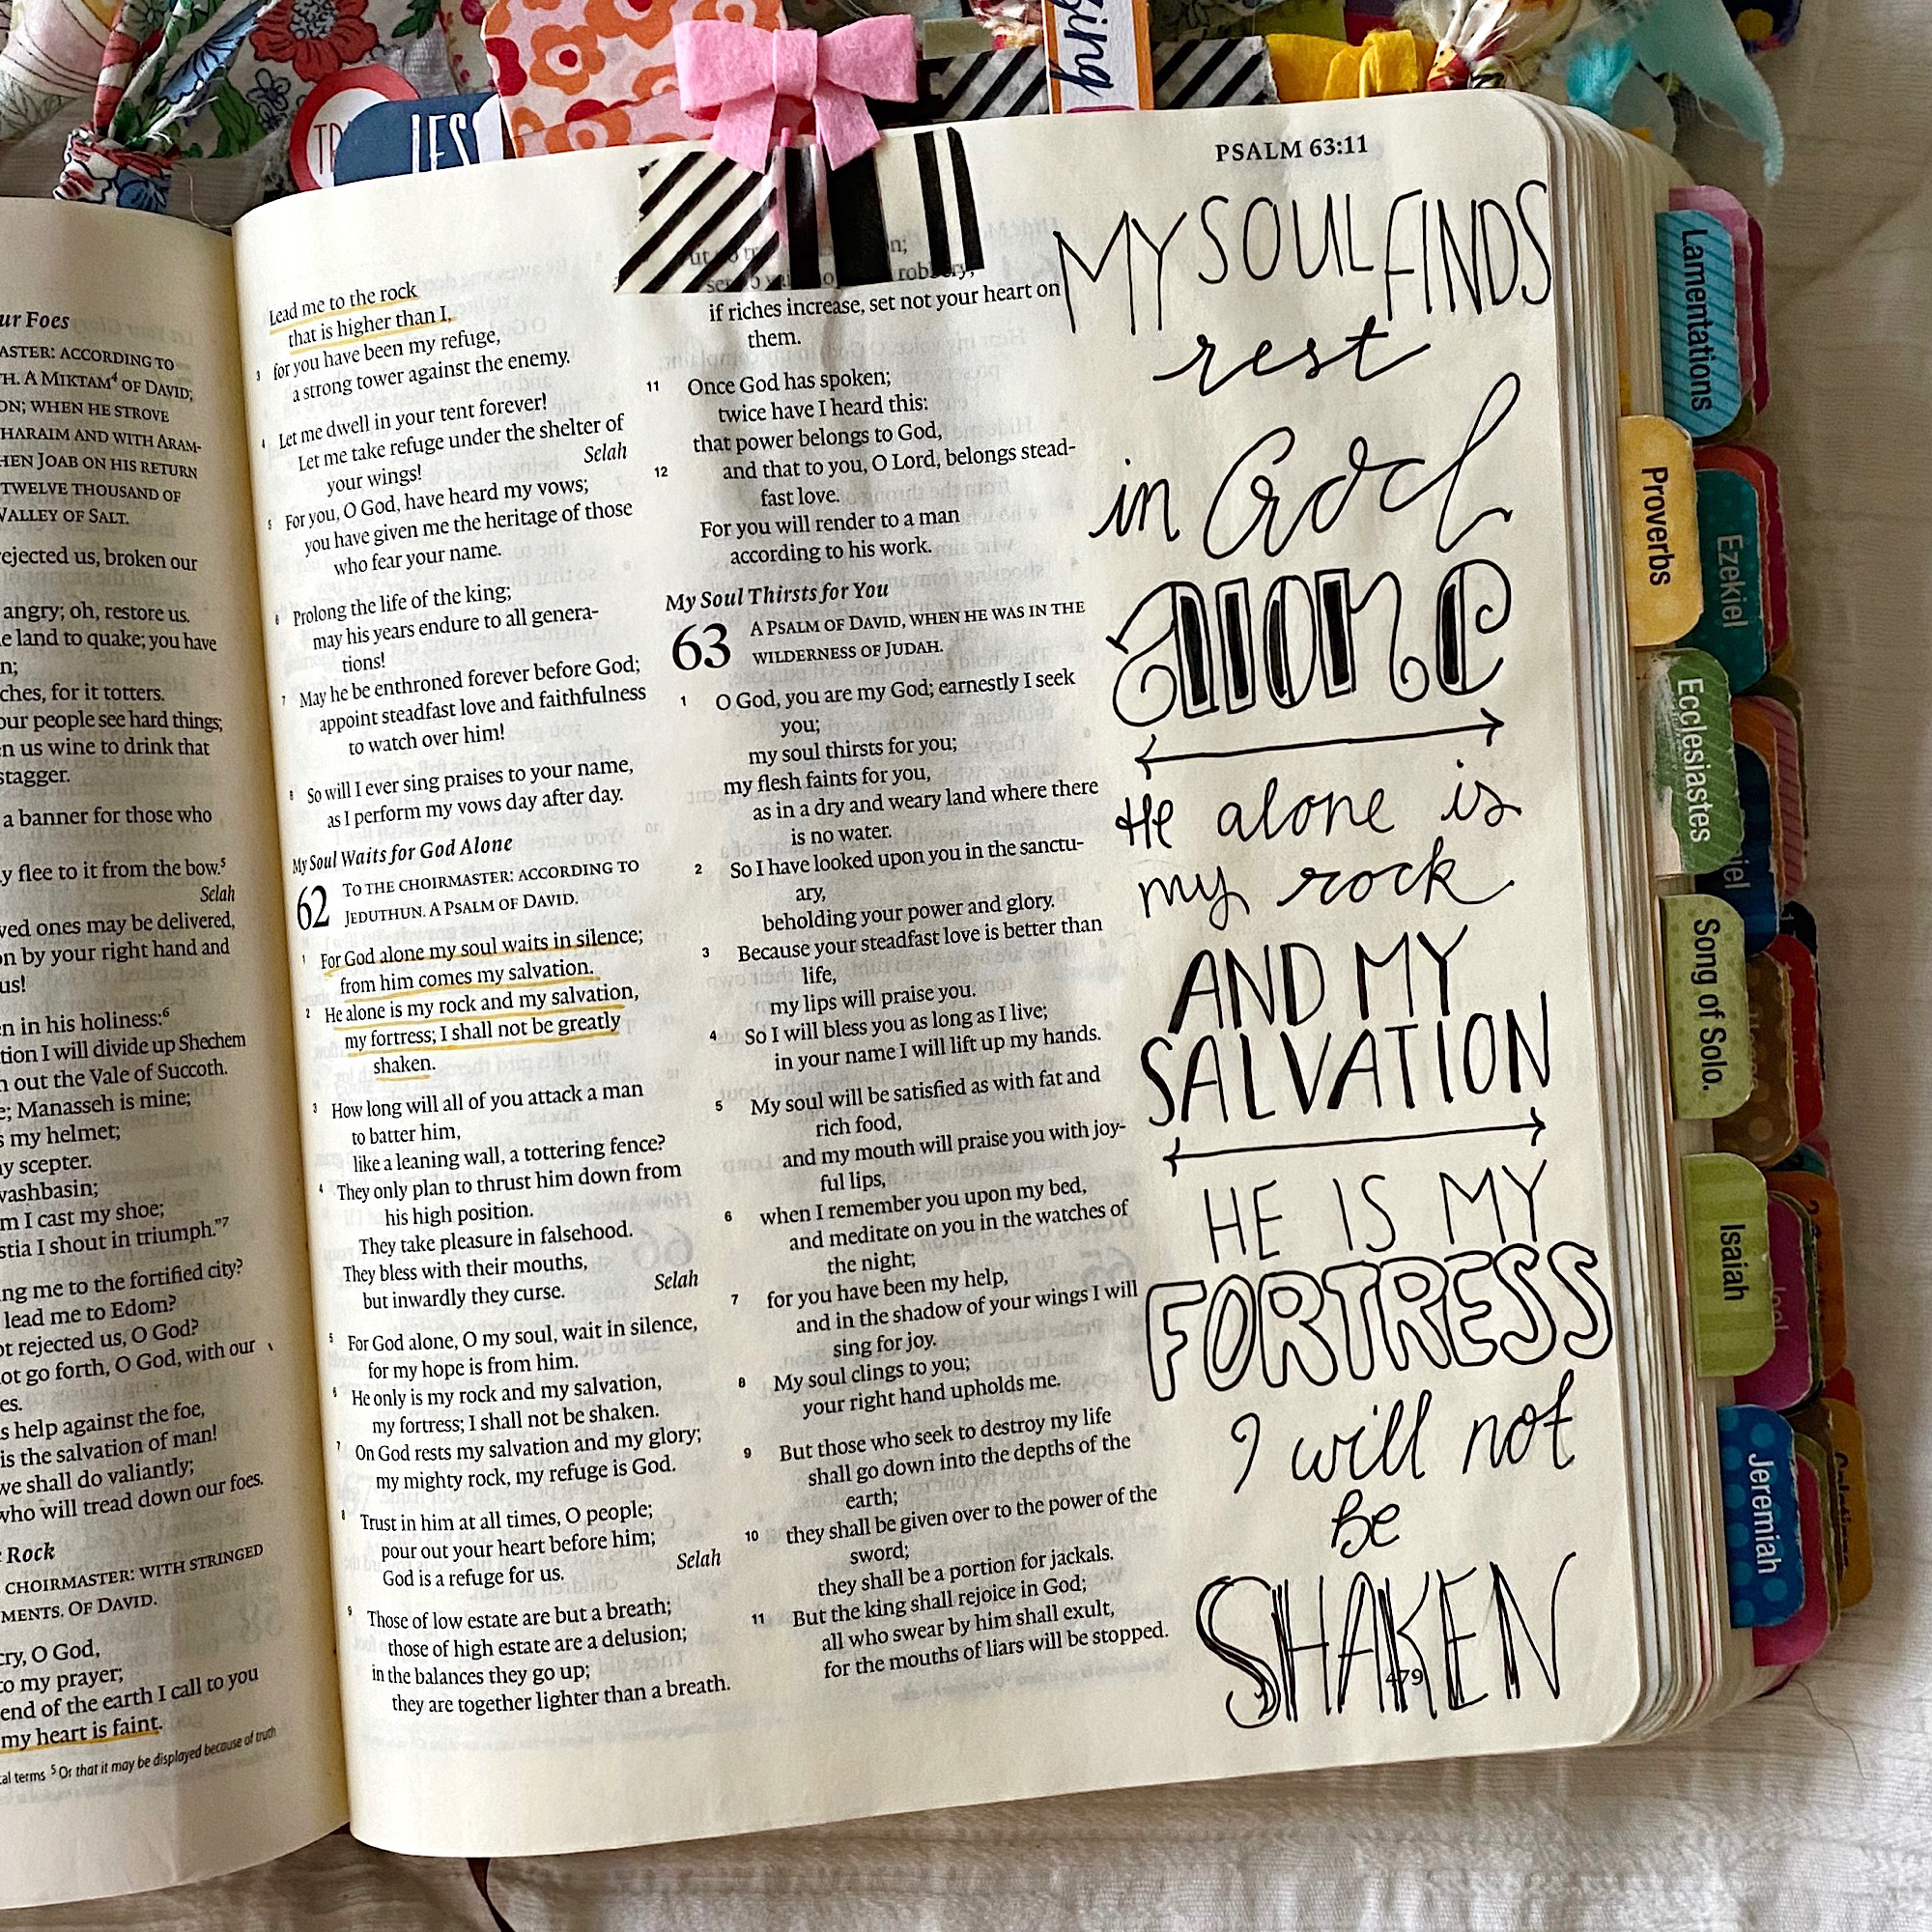 LESS
PSALM 63:11
ur Foes
ASTER: ACCORDING TO
TH. A MIKTAM⁴ OF DAVID;
ON; WHEN HE STROVE
HARAIM AND WITH ARAM-
HEN JOAB ON HIS RETURN
TWELVE THOUSAND OF
VALLEY OF SALT.
rejected us, broken our
angry; oh, restore us.
e land to quake; you have
n;
ches, for it totters.
our people see hard things;
n us wine to drink that
stagger.
a banner for those who
y flee to it from the bow.⁵
Selah
ved ones may be delivered,
on by your right hand and
us!
n in his holiness:⁶
tion I will divide up Shechem
n out the Vale of Succoth.
e; Manasseh is mine;
s my helmet;
y scepter.
washbasin;
m I cast my shoe;
stia I shout in triumph.”⁷
ng me to the fortified city?
lead me to Edom?
ot rejected us, O God?
ot go forth, O God, with our
es.
s help against the foe,
is the salvation of man!
we shall do valiantly;
who will tread down our foes.
Rock
CHOIRMASTER: WITH STRINGED
MENTS. OF DAVID.
cry, O God,
to my prayer;
end of the earth I call to you
my heart is faint.
cal terms ⁵ Or that it may be displayed because of truth
Lead me to the rock
that is higher than I,
3 for you have been my refuge,
a strong tower against the enemy.
4 Let me dwell in your tent forever!
Let me take refuge under the shelter of
your wings! Selah
5 For you, O God, have heard my vows;
you have given me the heritage of those
who fear your name.
6 Prolong the life of the king;
may his years endure to all genera-
tions!
7 May he be enthroned forever before God;
appoint steadfast love and faithfulness
to watch over him!
8 So will I ever sing praises to your name,
as I perform my vows day after day.
My Soul Waits for God Alone
62 TO THE CHOIRMASTER: ACCORDING TO
JEDUTHUN. A PSALM OF DAVID.
1 For God alone my soul waits in silence;
from him comes my salvation.
2 He alone is my rock and my salvation,
my fortress; I shall not be greatly
shaken.
3 How long will all of you attack a man
to batter him,
like a leaning wall, a tottering fence?
4 They only plan to thrust him down from
his high position.
They take pleasure in falsehood.
They bless with their mouths,
but inwardly they curse. Selah
5 For God alone, O my soul, wait in silence,
for my hope is from him.
6 He only is my rock and my salvation,
my fortress; I shall not be shaken.
7 On God rests my salvation and my glory;
my mighty rock, my refuge is God.
8 Trust in him at all times, O people;
pour out your heart before him;
God is a refuge for us. Selah
9 Those of low estate are but a breath;
those of high estate are a delusion;
in the balances they go up;
they are together lighter than a breath.
robbery;
if riches increase, set not your heart on
them.
11 Once God has spoken;
twice have I heard this:
that power belongs to God,
12 and that to you, O Lord, belongs stead-
fast love.
For you will render to a man
according to his work.
My Soul Thirsts for You
63 A PSALM OF DAVID, WHEN HE WAS IN THE
WILDERNESS OF JUDAH.
1 O God, you are my God; earnestly I seek
you;
my soul thirsts for you;
my flesh faints for you,
as in a dry and weary land where there
is no water.
2 So I have looked upon you in the sanctu-
ary,
beholding your power and glory.
3 Because your steadfast love is better than
life,
my lips will praise you.
4 So I will bless you as long as I live;
in your name I will lift up my hands.
5 My soul will be satisfied as with fat and
rich food,
and my mouth will praise you with joy-
ful lips,
6 when I remember you upon my bed,
and meditate on you in the watches of
the night;
7 for you have been my help,
and in the shadow of your wings I will
sing for joy.
8 My soul clings to you;
your right hand upholds me.
9 But those who seek to destroy my life
shall go down into the depths of the
earth;
10 they shall be given over to the power of the
sword;
they shall be a portion for jackals.
11 But the king shall rejoice in God;
all who swear by him shall exult,
for the mouths of liars will be stopped.
MY SOUL FINDS
rest
in God
alone
He alone is
my rock
AND MY
SALVATION
HE IS MY
FORTRESS
I will not
be
SHAKEN
479
Lamentations
Proverbs
Ezekiel
Ecclesiastes
iel
Song of Solo.
Isaiah
Joel
Jeremiah